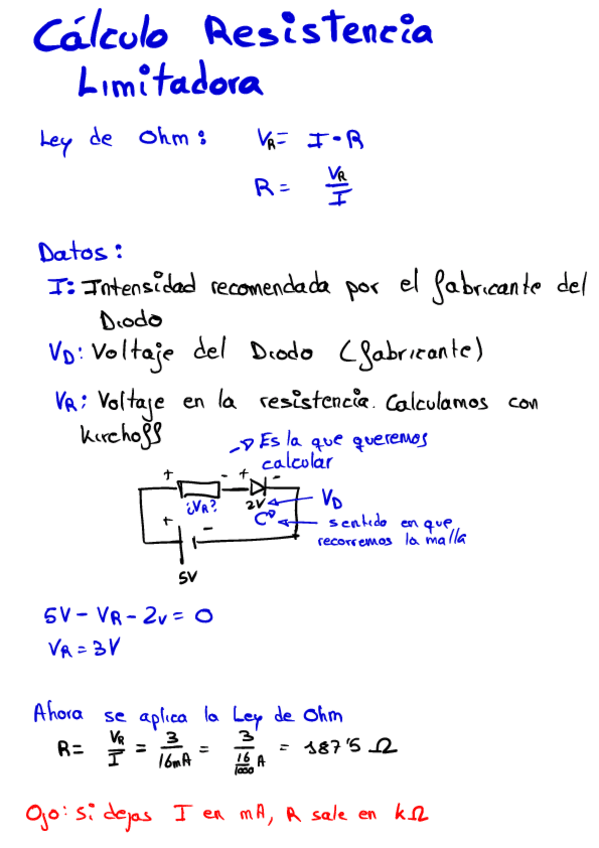 Cálculo Resistencia
Limitadora
Ley de Ohm: VR = I · R
R = VR / I
Datos:
I: Intensidad recomendada por el fabricante del
Diodo
VD: Voltaje del Diodo (fabricante)
VR: Voltaje en la resistencia. Calculamos con
kirchoff
Es la que queremos
calcular
+ - + -
¿VR? 2V VD
+ - sentido en que
recorremos la malla
5V
5V - VR - 2v = 0
VR = 3V
Ahora se aplica la Ley de Ohm
R = VR / I = 3 / 16mA = 3 / (16/1000 A) = 187'5 Ω
Ojo: si dejas I en mA, R sale en kΩ